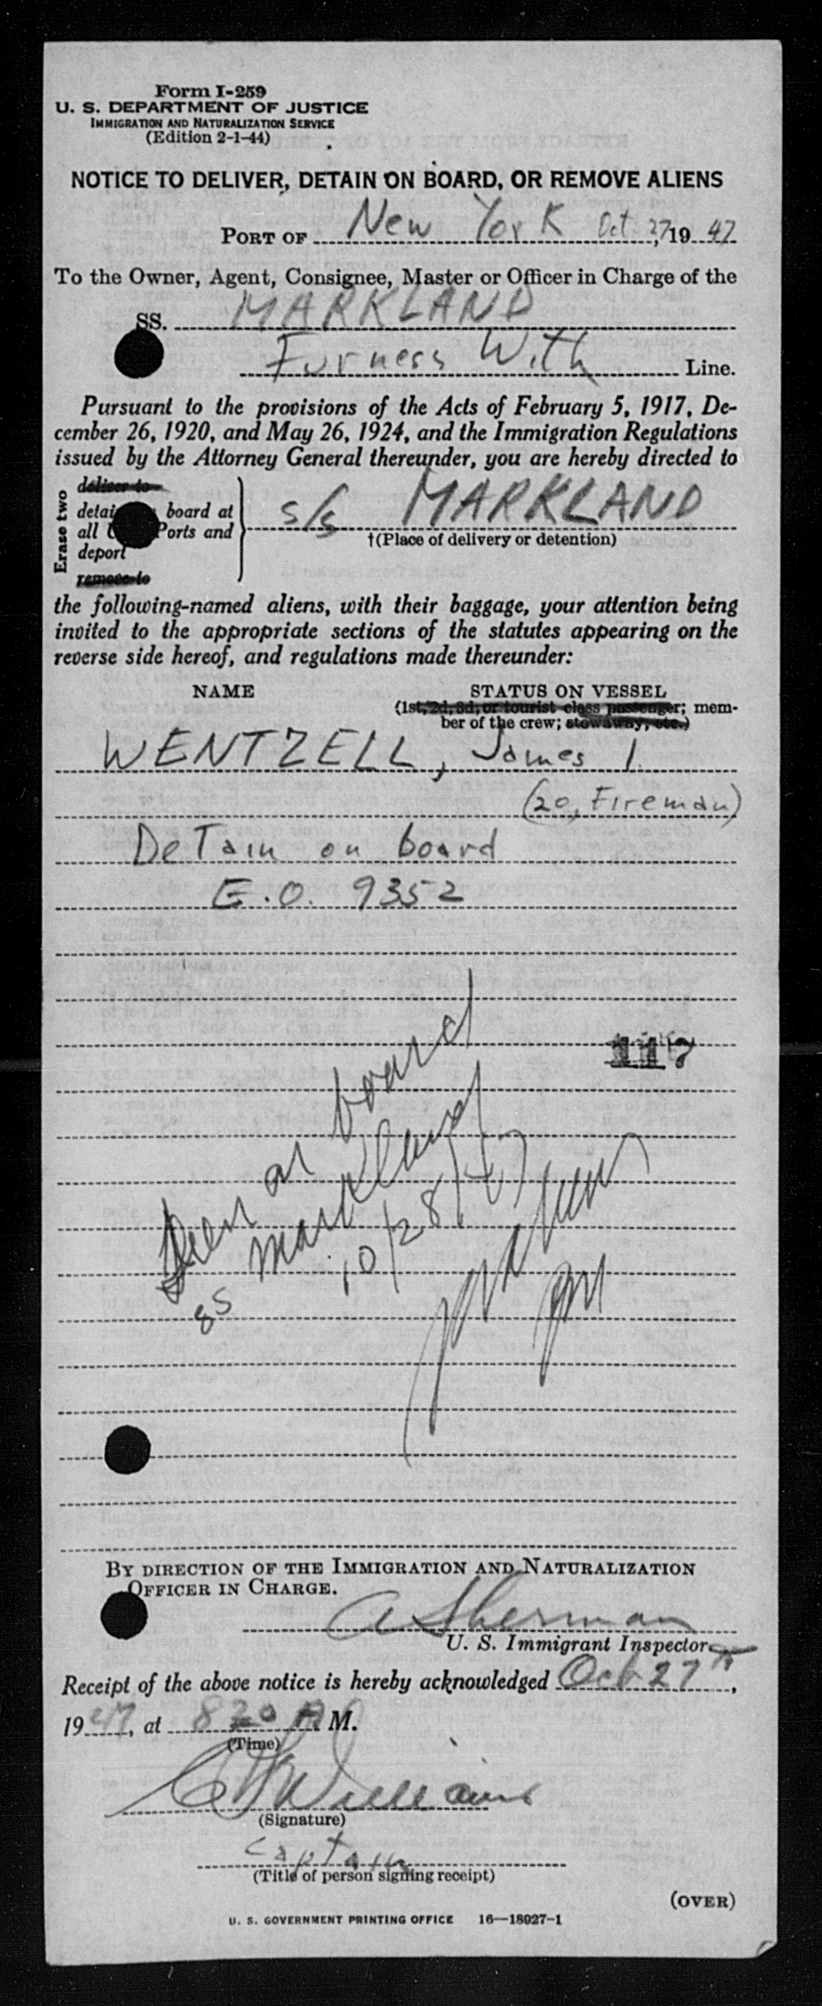 Form I-259
U. S. DEPARTMENT OF JUSTICE
IMMIGRATION AND NATURALIZATION SERVICE
(Edition 2-1-44)
NOTICE TO DELIVER, DETAIN ON BOARD, OR REMOVE ALIENS
PORT OF New York Oct. 27, 1947
To the Owner, Agent, Consignee, Master or Officer in Charge of the
SS. MARKLAND
Furness With Line.
Pursuant to the provisions of the Acts of February 5, 1917, De-
cember 26, 1920, and May 26, 1924, and the Immigration Regulations
issued by the Attorney General thereunder, you are hereby directed to
Erase two
deliver to
detai board at
all Ports and
deport
remove to
s/s MARKLAND
†(Place of delivery or detention)
the following-named aliens, with their baggage, your attention being
invited to the appropriate sections of the statutes appearing on the
reverse side hereof, and regulations made thereunder:
NAME STATUS ON VESSEL
(1st, 2d, 3d, or tourist class passenger; mem-
ber of the crew; stowaway, etc.)
WENTZELL, James I.
(20, Fireman)
DeTain on board
E.O. 9352
117
Seen on board
SS Markland
10/28/47
BY DIRECTION OF THE IMMIGRATION AND NATURALIZATION
OFFICER IN CHARGE.
A Sherman
U. S. Immigrant Inspector.
Receipt of the above notice is hereby acknowledged Oct 27th,
1947, at 820 A M.
(Time)
Williams
(Signature)
Captain
(Title of person signing receipt)
(OVER)
U. S. GOVERNMENT PRINTING OFFICE 16—18027-1